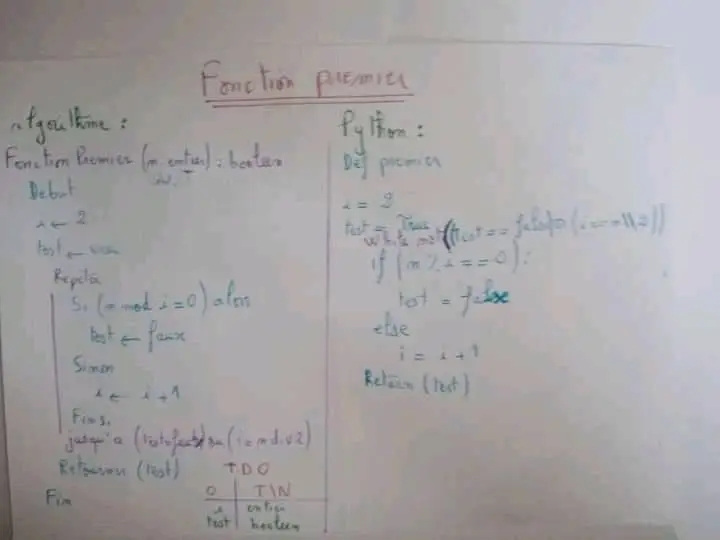 Fonction premier
Algorithme :
Fonction Premier (n entier) : booleen
Debut
i ← 2
test ← vrai
Repeter
Si (n mod i = 0) alors
test ← faux
Sinon
i ← i + 1
Finsi
jusqu'a (test=faux) ou (i = n div 2)
Retourner (test)
Fin
T.D.O
O | T\N
i | entier
test | booleen
Python :
Def premier
i = 2
test = True
while not (test == false) or (i == n\\2))
if (n % i == 0) :
test = false
else
i = i + 1
Return (test)